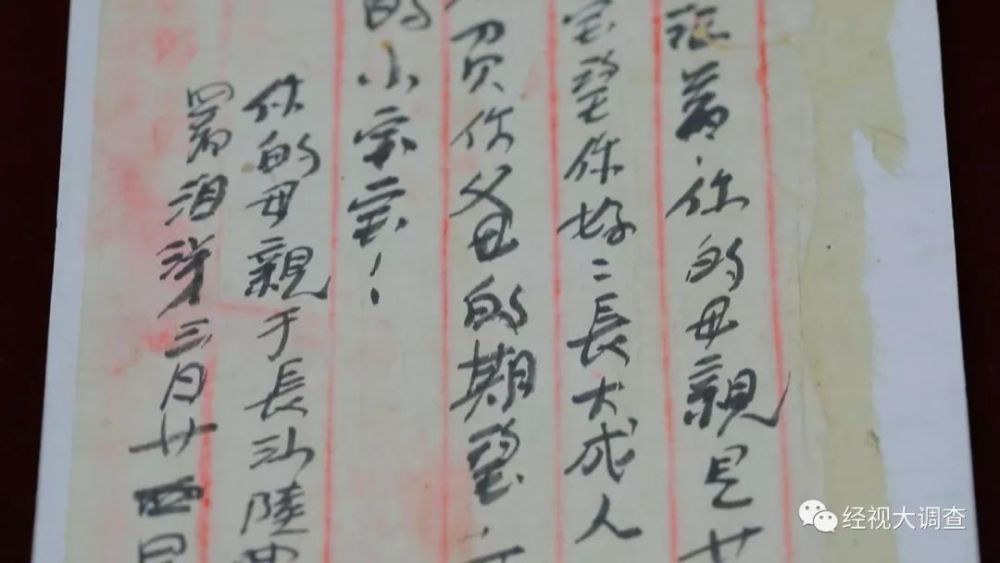 着，你的母親是廿
宝望你好〻長大成人
负你父母的期望
的小宝宝！
你的母親于長沙陸
署泪涕三月廿四
经视大调查